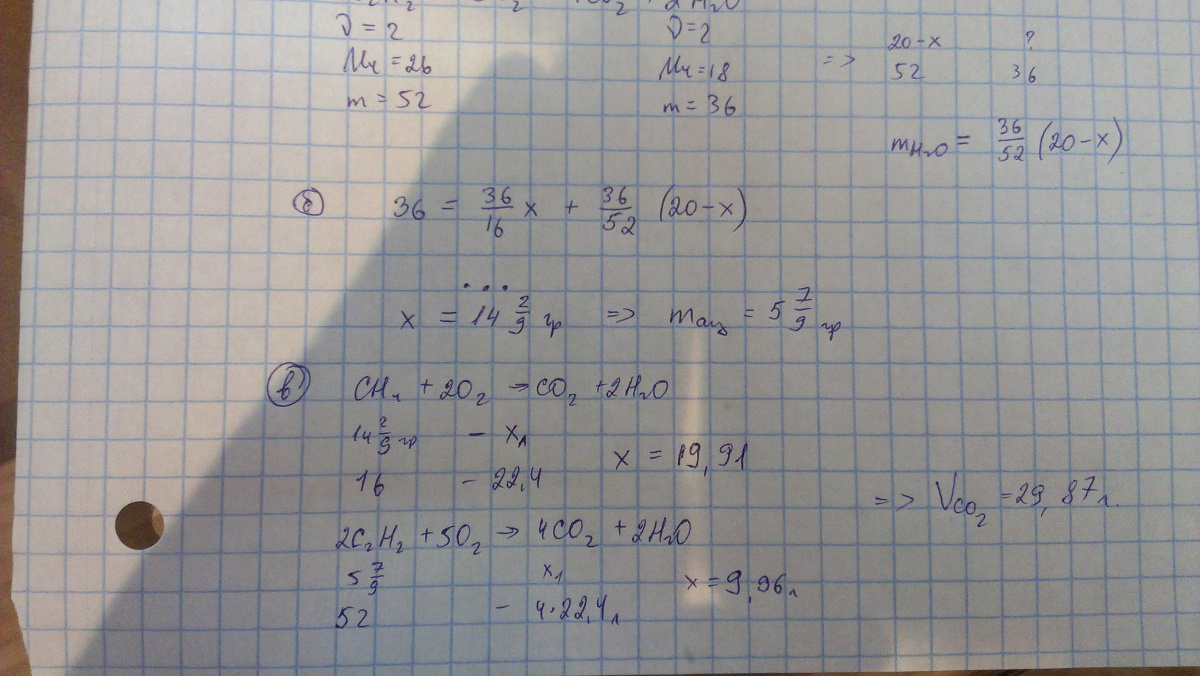 ν = 2 ν = 2
Mr = 26 Mr = 18 => 20-x ?
m = 52 m = 36 52 36
mH₂O = 36/52 (20-x)
б 36 = 36/16 x + 36/52 (20-x)
...
x = 14 2/9 гр => mац = 5 7/9 гр
в CH₄ + 2O₂ → CO₂ + 2H₂O
14 2/9 гр - xл
16 - 22,4 x = 19,91
=> VCO₂ = 29,87 л.
2C₂H₂ + 5O₂ → 4CO₂ + 2H₂O
5 7/9 xл x = 9,96 л
52 - 4·22,4 л